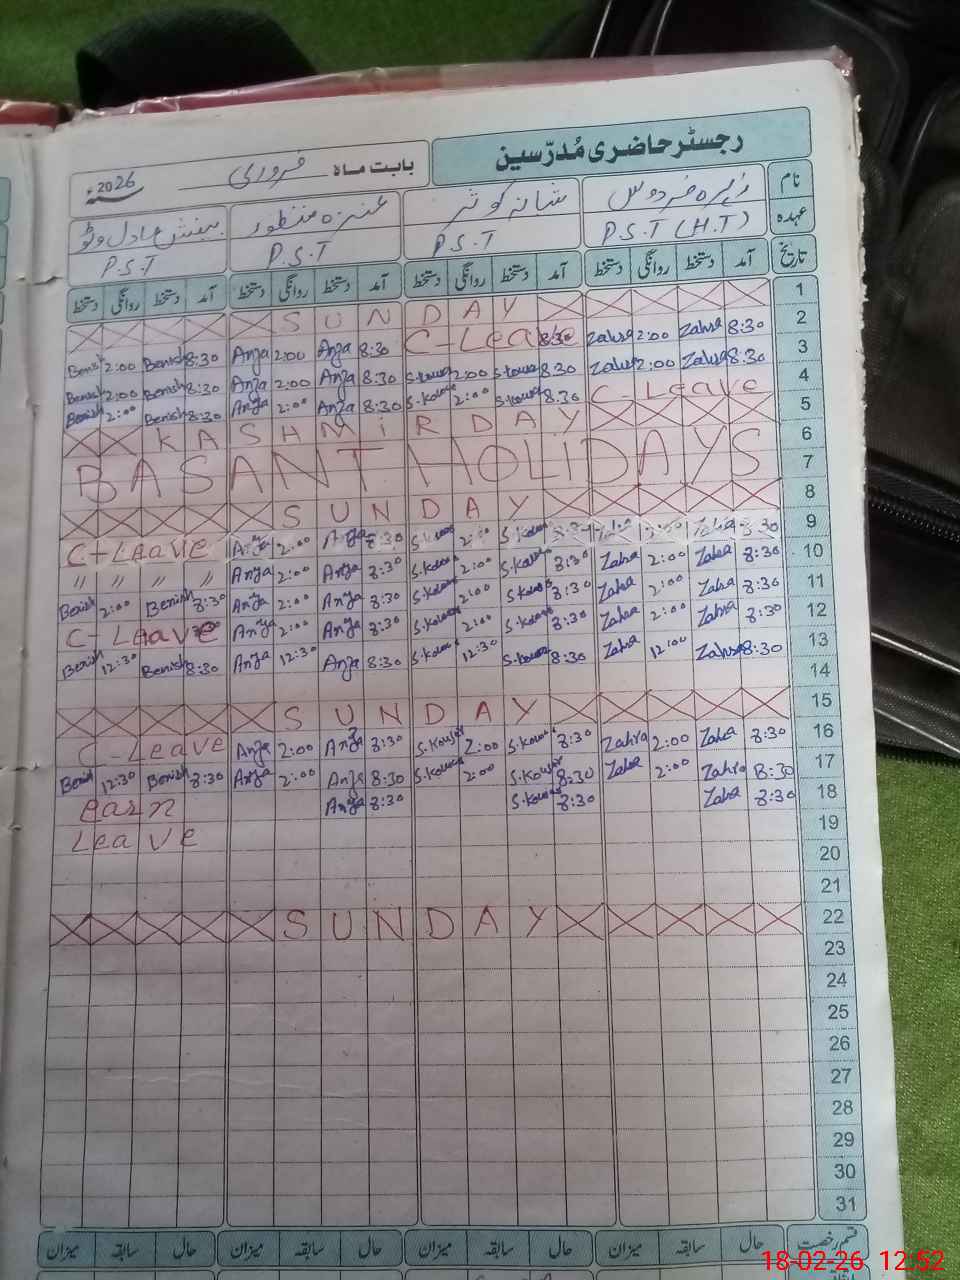 رجسٹر حاضری مُدرّسین
بابت ماہ فروری 2026
نام زہرہ فردوس شانہ کوثر عنزہ منظور بینش عادل وٹو
عہدہ P.S.T (H.T) P.S.T P.S.T P.S.T
تاریخ آمد دستخط روانگی دستخط آمد دستخط روانگی دستخط آمد دستخط روانگی دستخط آمد دستخط روانگی دستخط
SUNDAY 1
Benish 2:00 Benish 8:30 Anza 2:00 Anza 8:30 C-Leave 8:30 Zahra 2:00 Zahra 8:30 2
Benish 2:00 Benish 8:30 Anza 2:00 Anza 8:30 S.Kousar 2:00 S.Kousar 8:30 Zahra 2:00 Zahra 8:30 3
Benish 2:00 Benish 8:30 Anza 2:00 Anza 8:30 S.Kousar 2:00 S.Kousar 8:30 C-Leave 4
KASHMIR DAY 5
BASANT HOLIDAYS 6
7
SUNDAY 8
C-Leave Anza 2:00 Anza 8:30 S.Kousar 2:00 S.Kousar 8:30 Zahra 2:00 Zahra 8:30 9
" " " " Anza 2:00 Anza 8:30 S.Kousar 2:00 S.Kousar 8:30 Zahra 2:00 Zahra 8:30 10
Benish 2:00 Benish 8:30 Anza 2:00 Anza 8:30 S.Kousar 2:00 S.Kousar 8:30 Zahra 2:00 Zahra 8:30 11
C-Leave Anza 2:00 Anza 8:30 S.Kousar 2:00 S.Kousar 8:30 Zahra 2:00 Zahra 8:30 12
Benish 12:30 Benish 8:30 Anza 12:30 Anza 8:30 S.Kousar 12:30 S.Kousar 8:30 Zahra 12:00 Zahra 8:30 13
14
SUNDAY 15
C-Leave Anza 2:00 Anza 8:30 S.Kousar 2:00 S.Kousar 8:30 Zahra 2:00 Zahra 8:30 16
Benish 12:30 Benish 8:30 Anza 2:00 Anza 8:30 S.Kousar 2:00 S.Kousar 8:30 Zahra 2:00 Zahra 8:30 17
earn Anza 8:30 S.Kousar 8:30 Zahra 8:30 18
Leave 19
20
21
SUNDAY 22
23
24
25
26
27
28
29
30
31
قسم رخصت حال سابقہ میزان حال سابقہ میزان حال سابقہ میزان حال سابقہ میزان
18-02-26 12:52